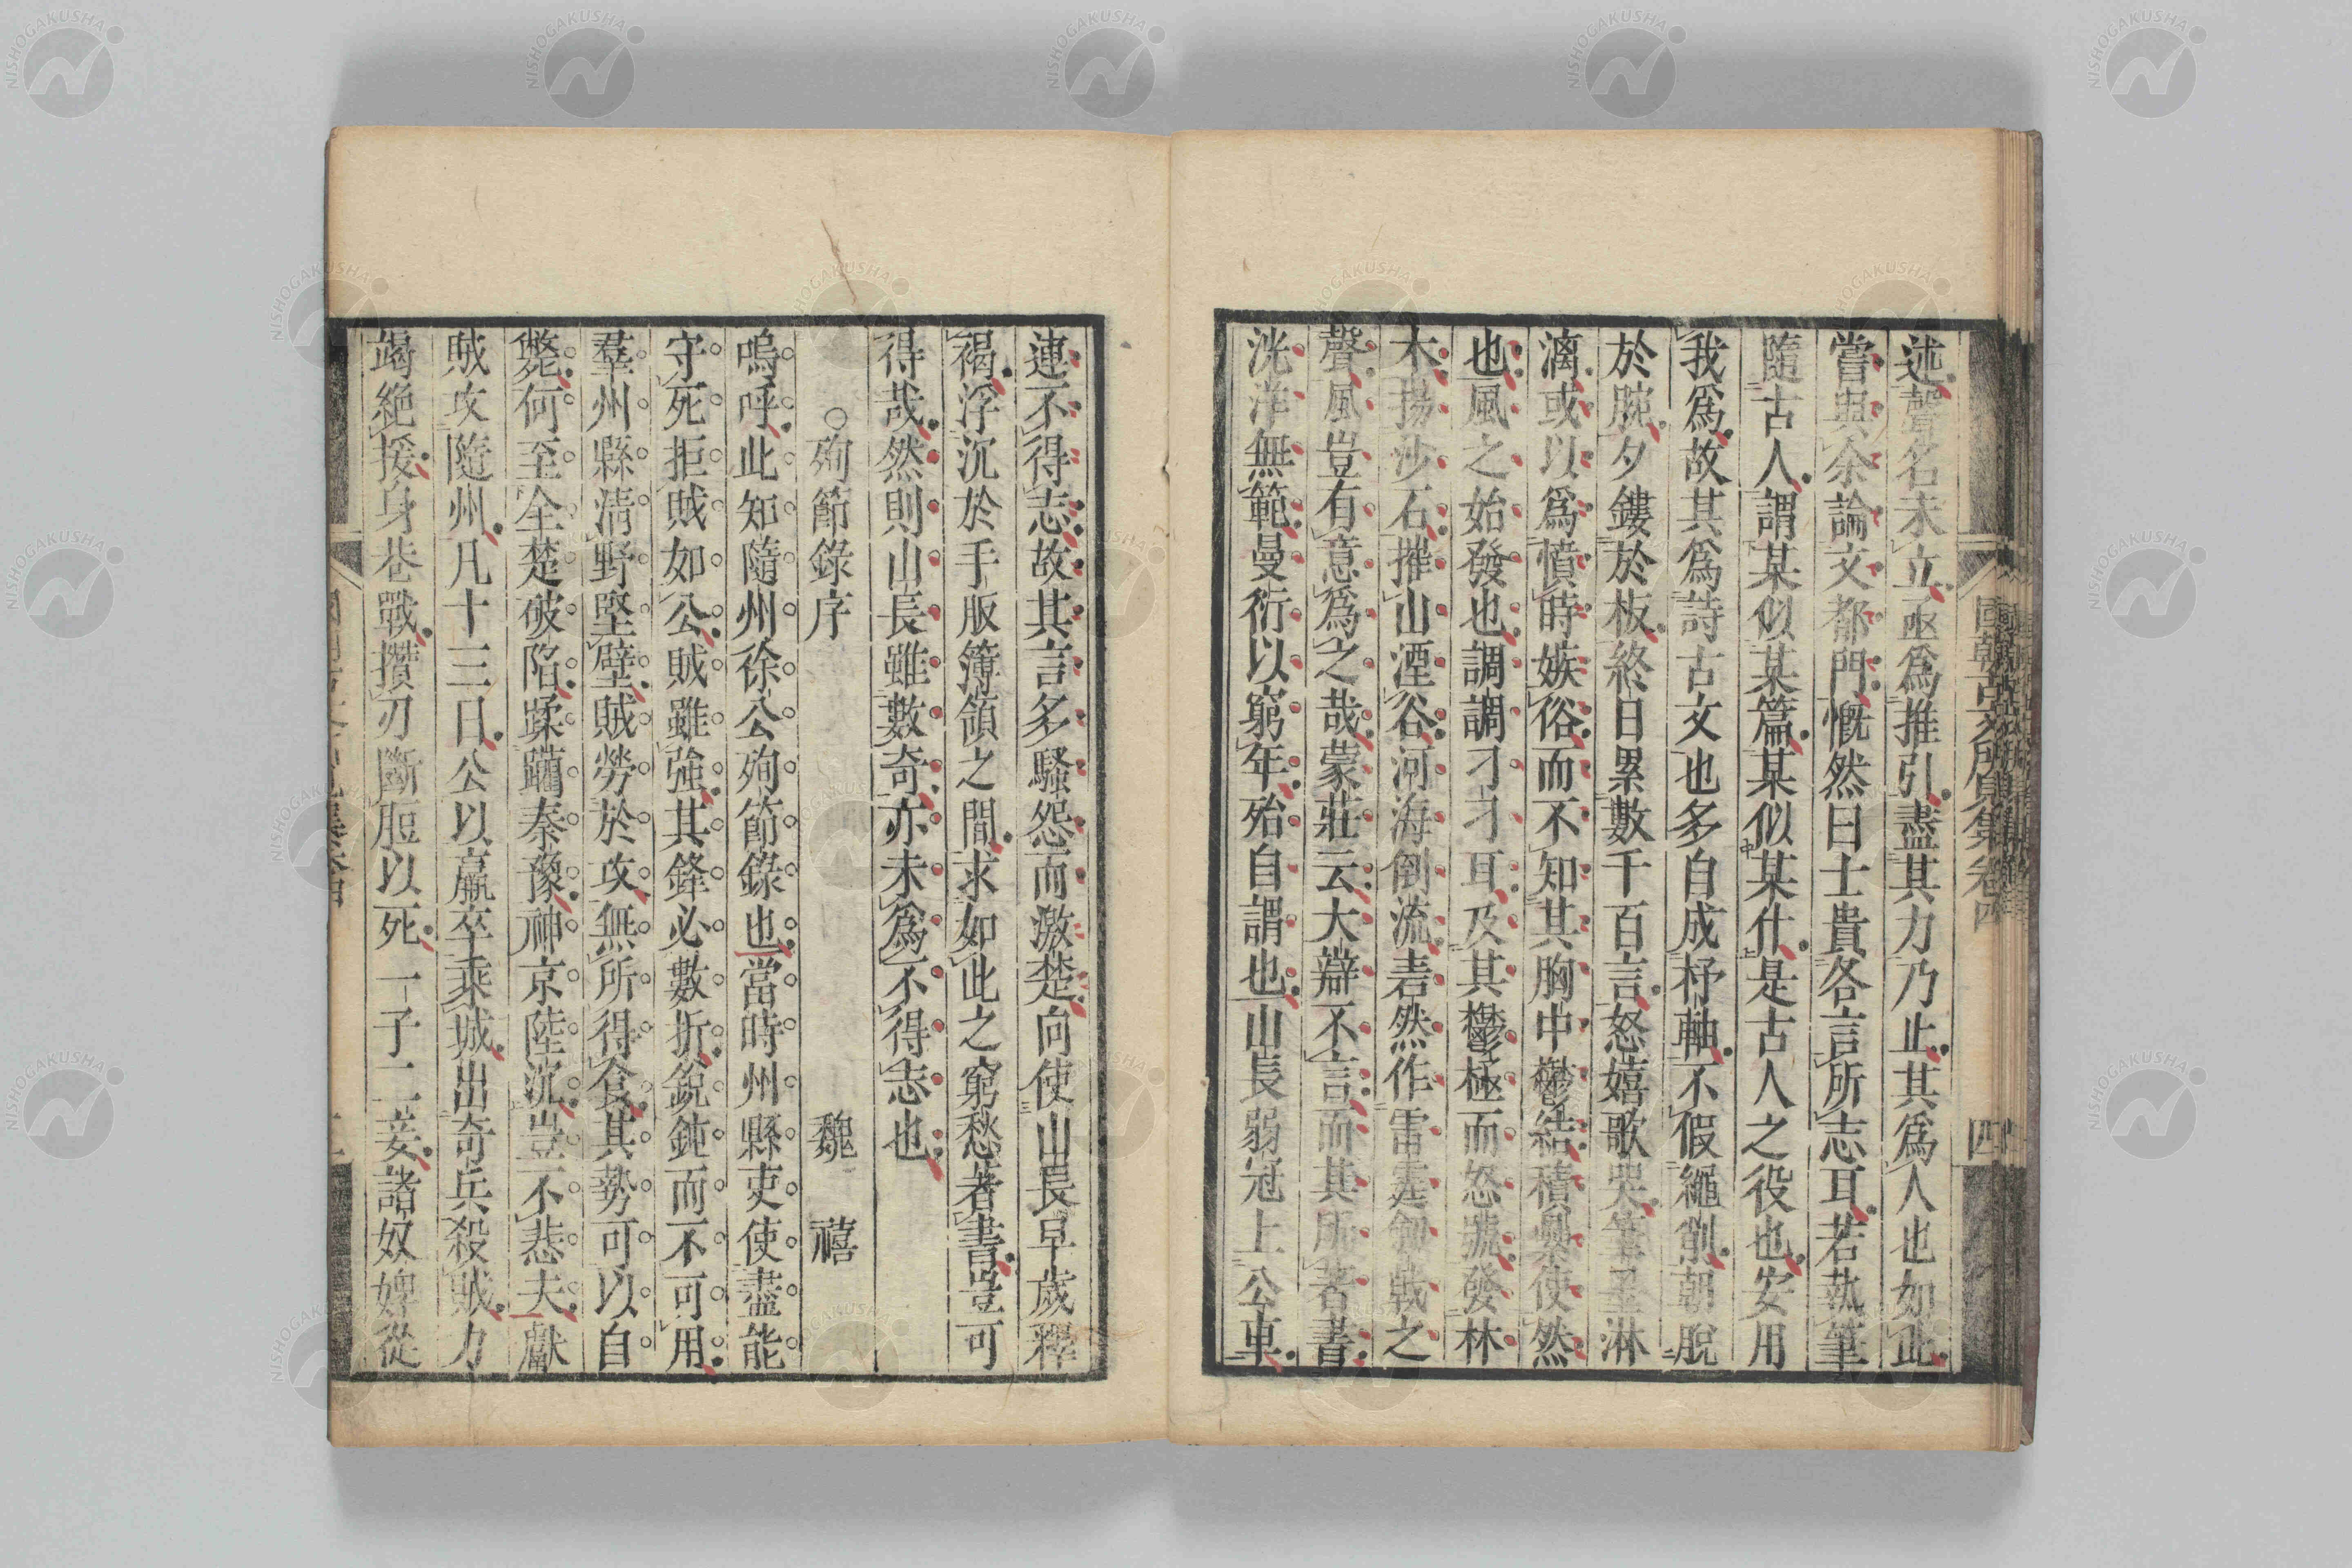 述聲名未立亟爲推引盡其力乃止其爲人也如此
嘗與余論文都門慨然曰士貴各言所志耳若執筆
隨古人謂某似某篇某似某什是古人之役也安用
我爲故其爲詩古文也多自成杼軸不假繩削朝脫
於腕夕鏤於板終日累數千百言怒嬉歌哭筆墨淋
漓或以爲憤時嫉俗而不知其胸中鬱結積纍使然
也風之始發也調調刁刁耳及其鬱極而怒號發林
木揚沙石摧山湮谷河海倒流砉然作雷霆劍戟之
聲風豈有意爲之哉蒙莊云大辯不言而其所著書
洸洋無範曼衍以窮年殆自謂也山長弱冠上公車
國朝古文所見集卷四
四
連不得志故其言多騷怨而激楚向使山長早歲釋
褐浮沉於手版簿領之間求如此之窮愁著書豈可
得哉然則山長雖數奇亦未爲不得志也
○殉節錄序 魏禧
嗚呼此知隨州徐公殉節錄也當時州縣吏使盡能
守死拒賊如公賊雖強其鋒必數折銳鈍而不可用
羣州縣淸野堅壁賊勞於攻無所得食其勢可以自
斃何至全楚破陷蹂躪秦豫神京陸沉豈不悲夫獻
賊攻隨州凡十三日公以羸卒乘城出奇兵殺賊力
竭絕援身巷戰攢刃斷脰以死一子二妾諸奴婢從